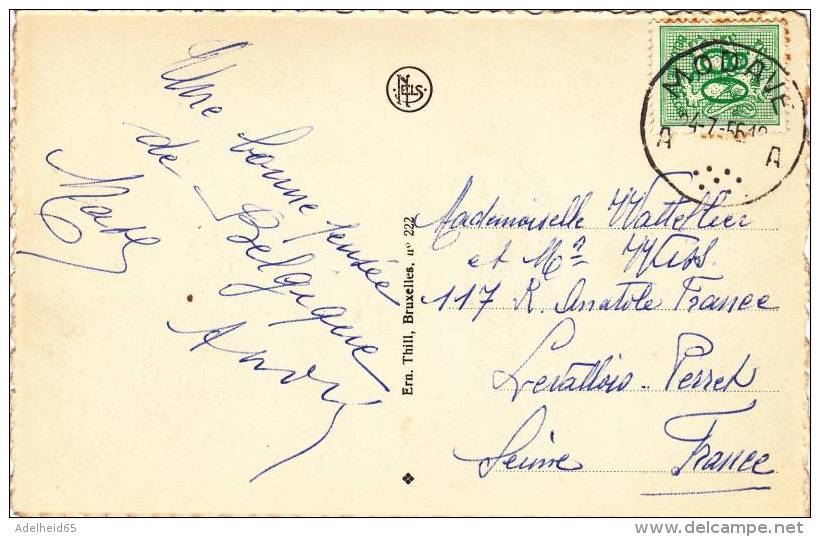 Une bonne pensée
de Belgique
André
NELS
Ern. Thill, Bruxelles, n° 222
MODAVE
4-7-56 12
A A
Mademoiselle Wattellier
et Mᵃ
117 R. Anatole France
Levallois-Perret
Seine France
Adelheid65
delcampe.net